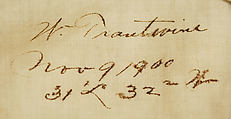 W. Trautwine
Nov 9 1900
31 L 32